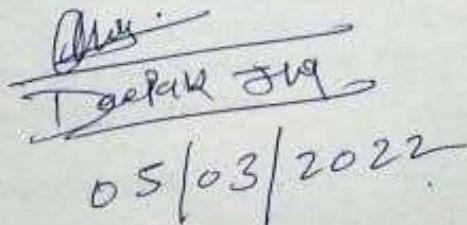 Deepak Jha
05/03/2022